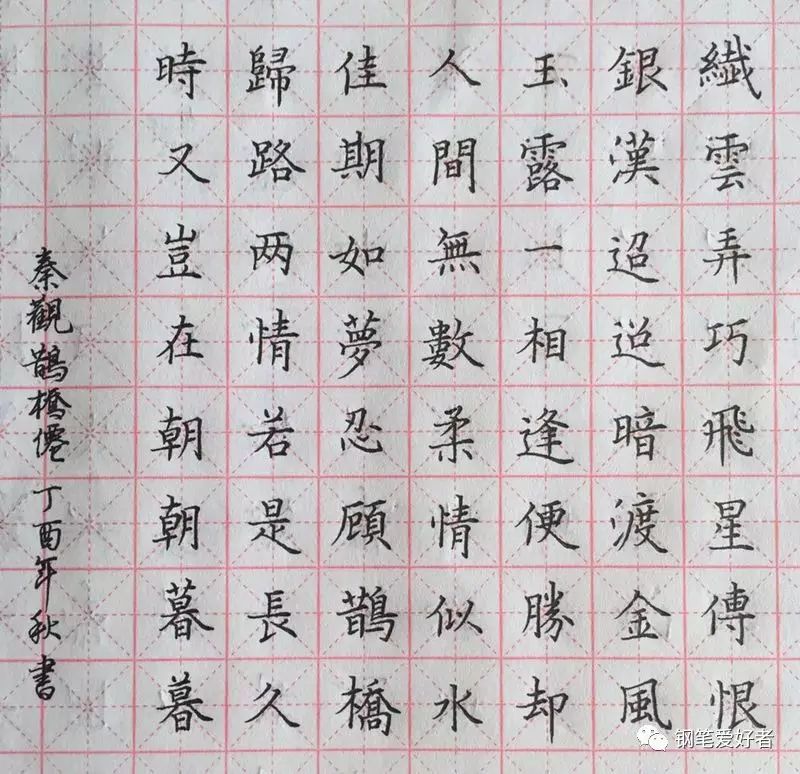 纖雲弄巧飛星傳恨
銀漢迢迢暗渡金風
玉露一相逢便勝却
人間無數柔情似水
佳期如夢忍顧鵲橋
歸路两情若是長久
時又豈在朝朝暮暮
秦觀鵲橋僊 丁酉年秋書
钢笔爱好者